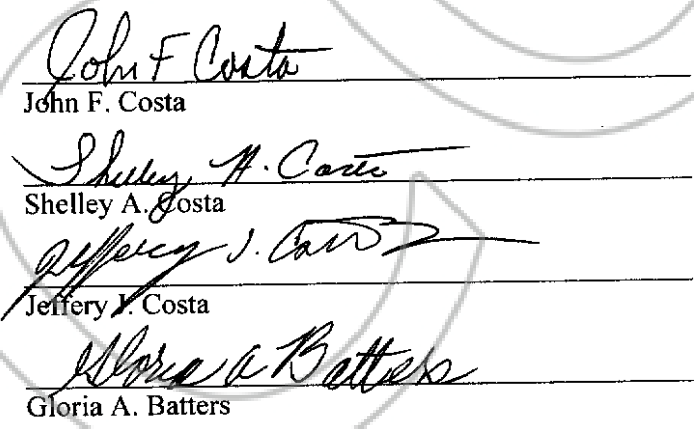 John F Costa
John F. Costa
Shelley A. Costa
Shelley A. Costa
Jeffery J. Costa
Jeffery J. Costa
Gloria A Batters
Gloria A. Batters